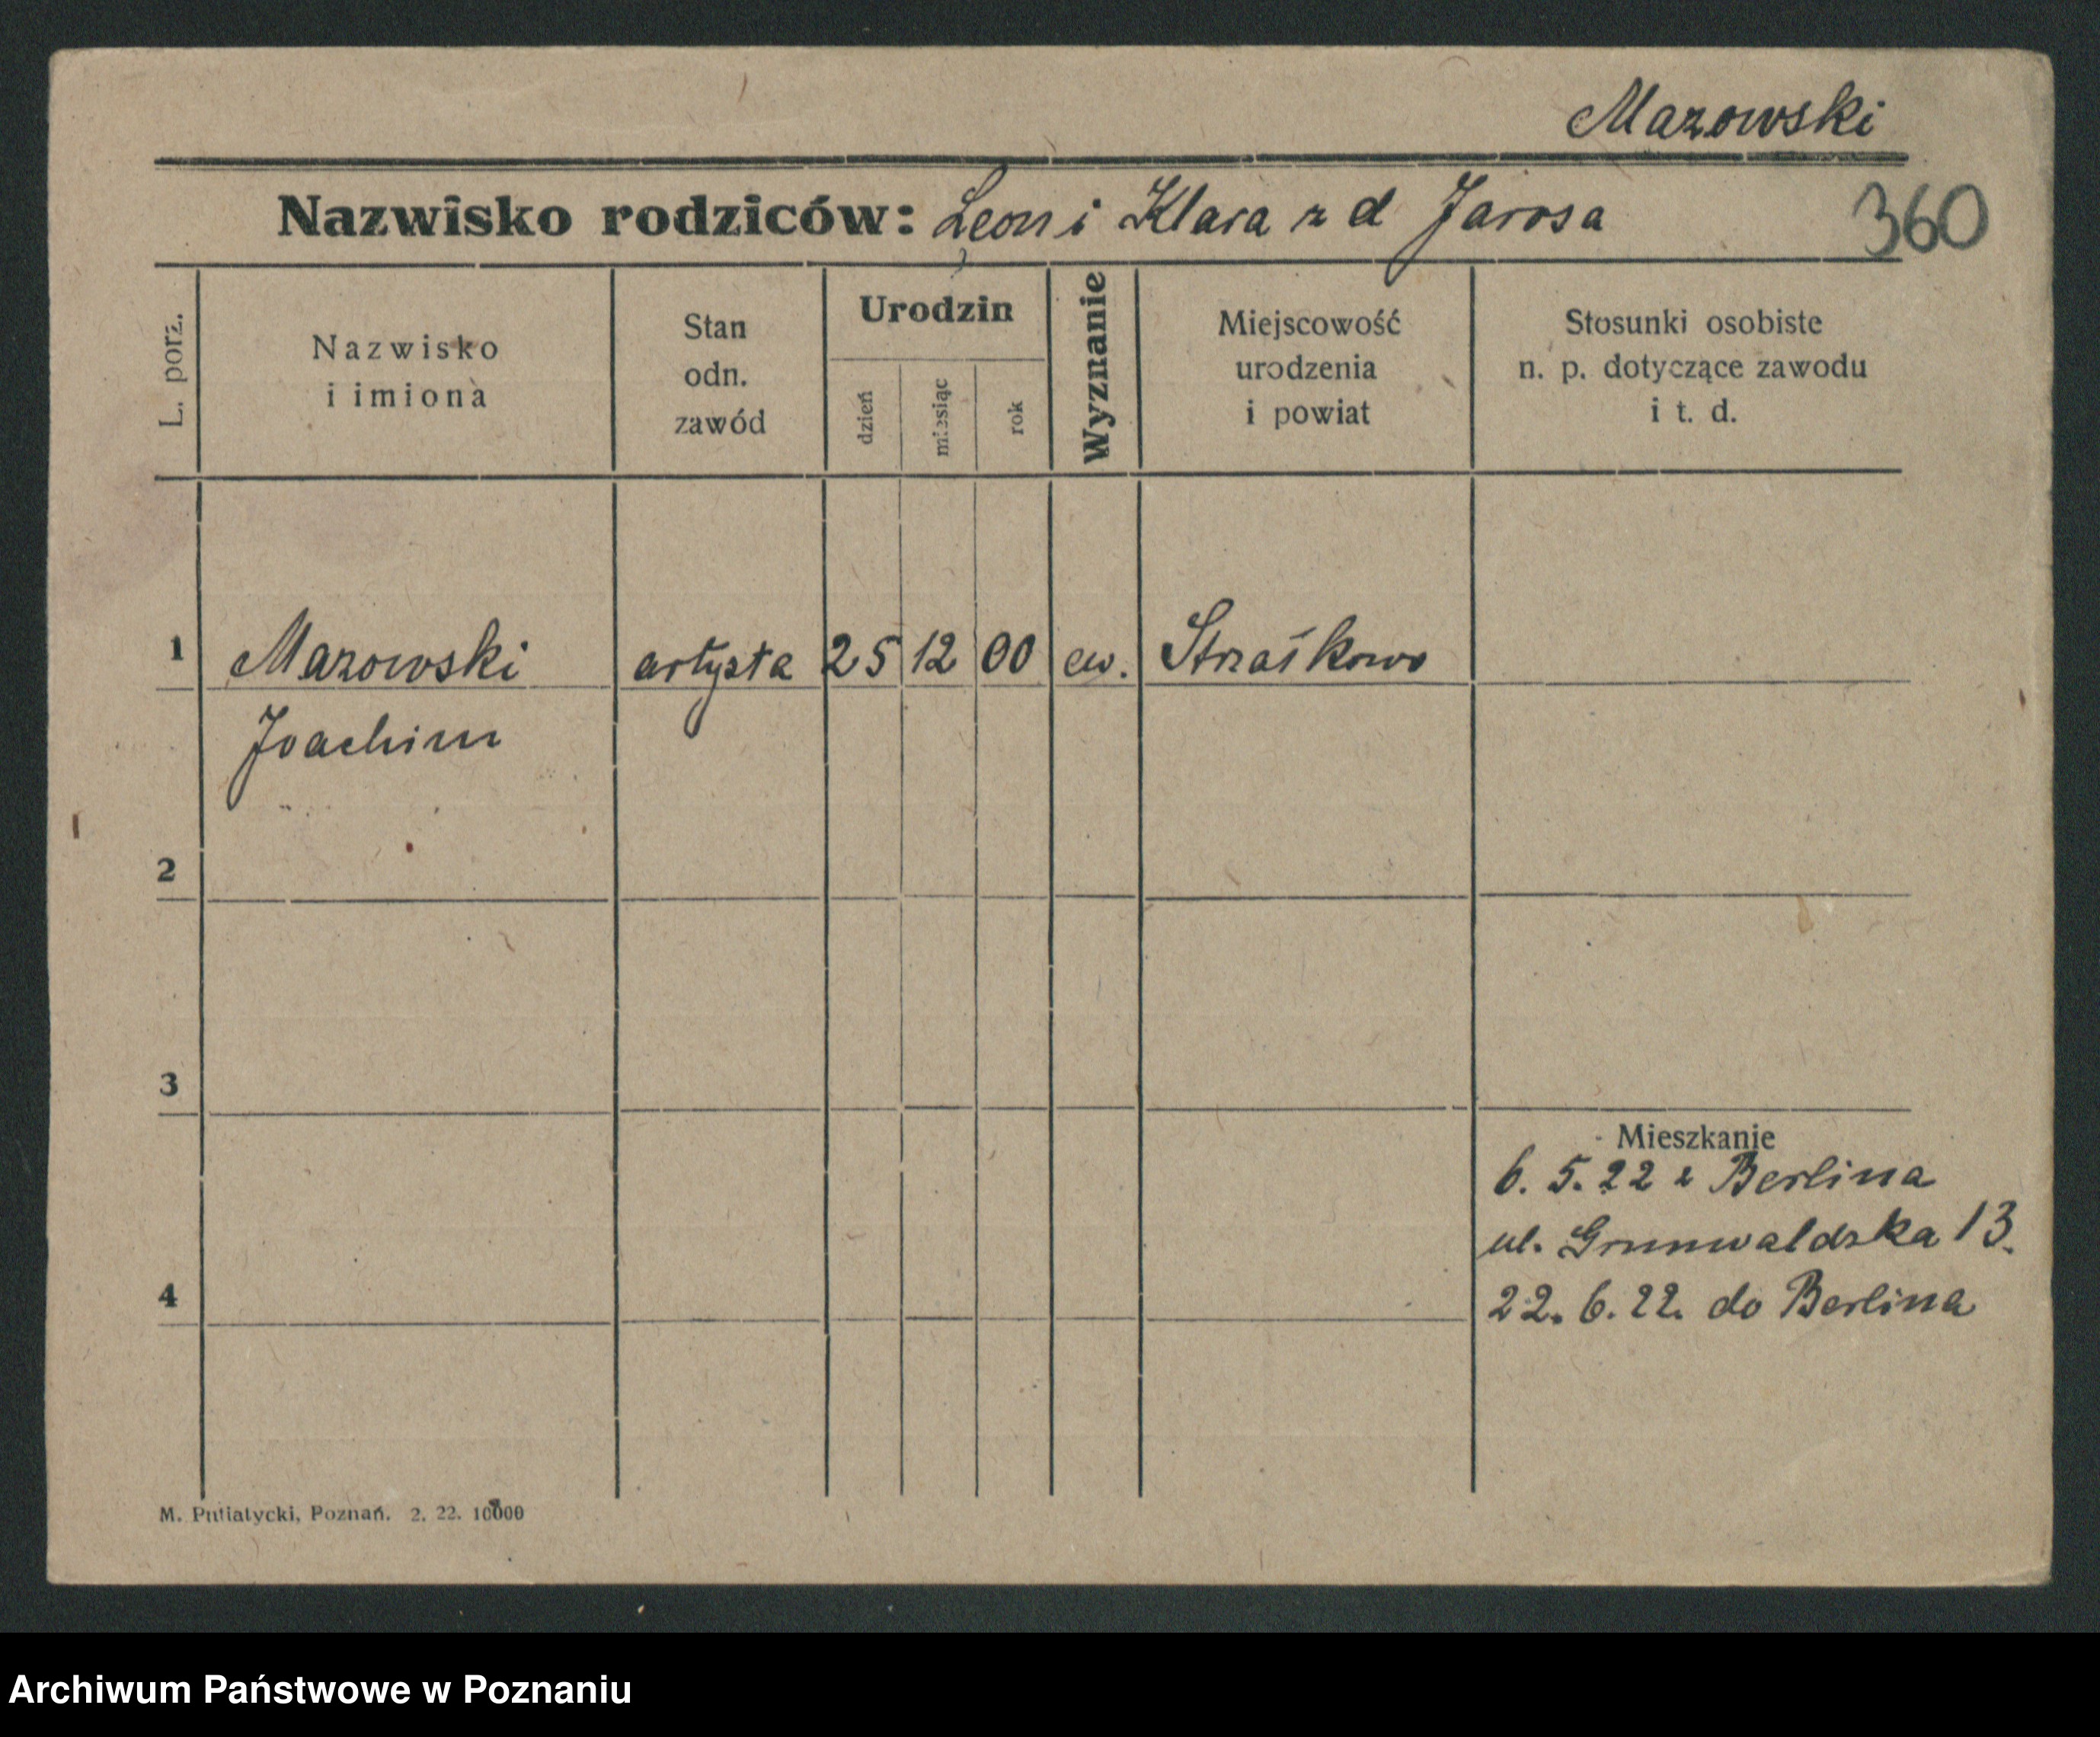 Mazowski
Nazwisko rodziców: Leon i Klara z d Jarosa
360
L. porz.
Nazwisko
i imiona
Stan
odn.
zawód
Urodzin
dzień
miesiąc
rok
Wyznanie
Miejscowość
urodzenia
i powiat
Stosunki osobiste
n. p. dotyczące zawodu
i t. d.
1 Mazowski artysta 25 12 00 ew. Strzałkowo
Joachim
2
3
Mieszkanie
6. 5. 22 z Berlina
ul. Grunwaldzka 13.
4 22. 6. 22. do Berlina
M. Putiatycki, Poznań. 2. 22. 10000
Archiwum Państwowe w Poznaniu